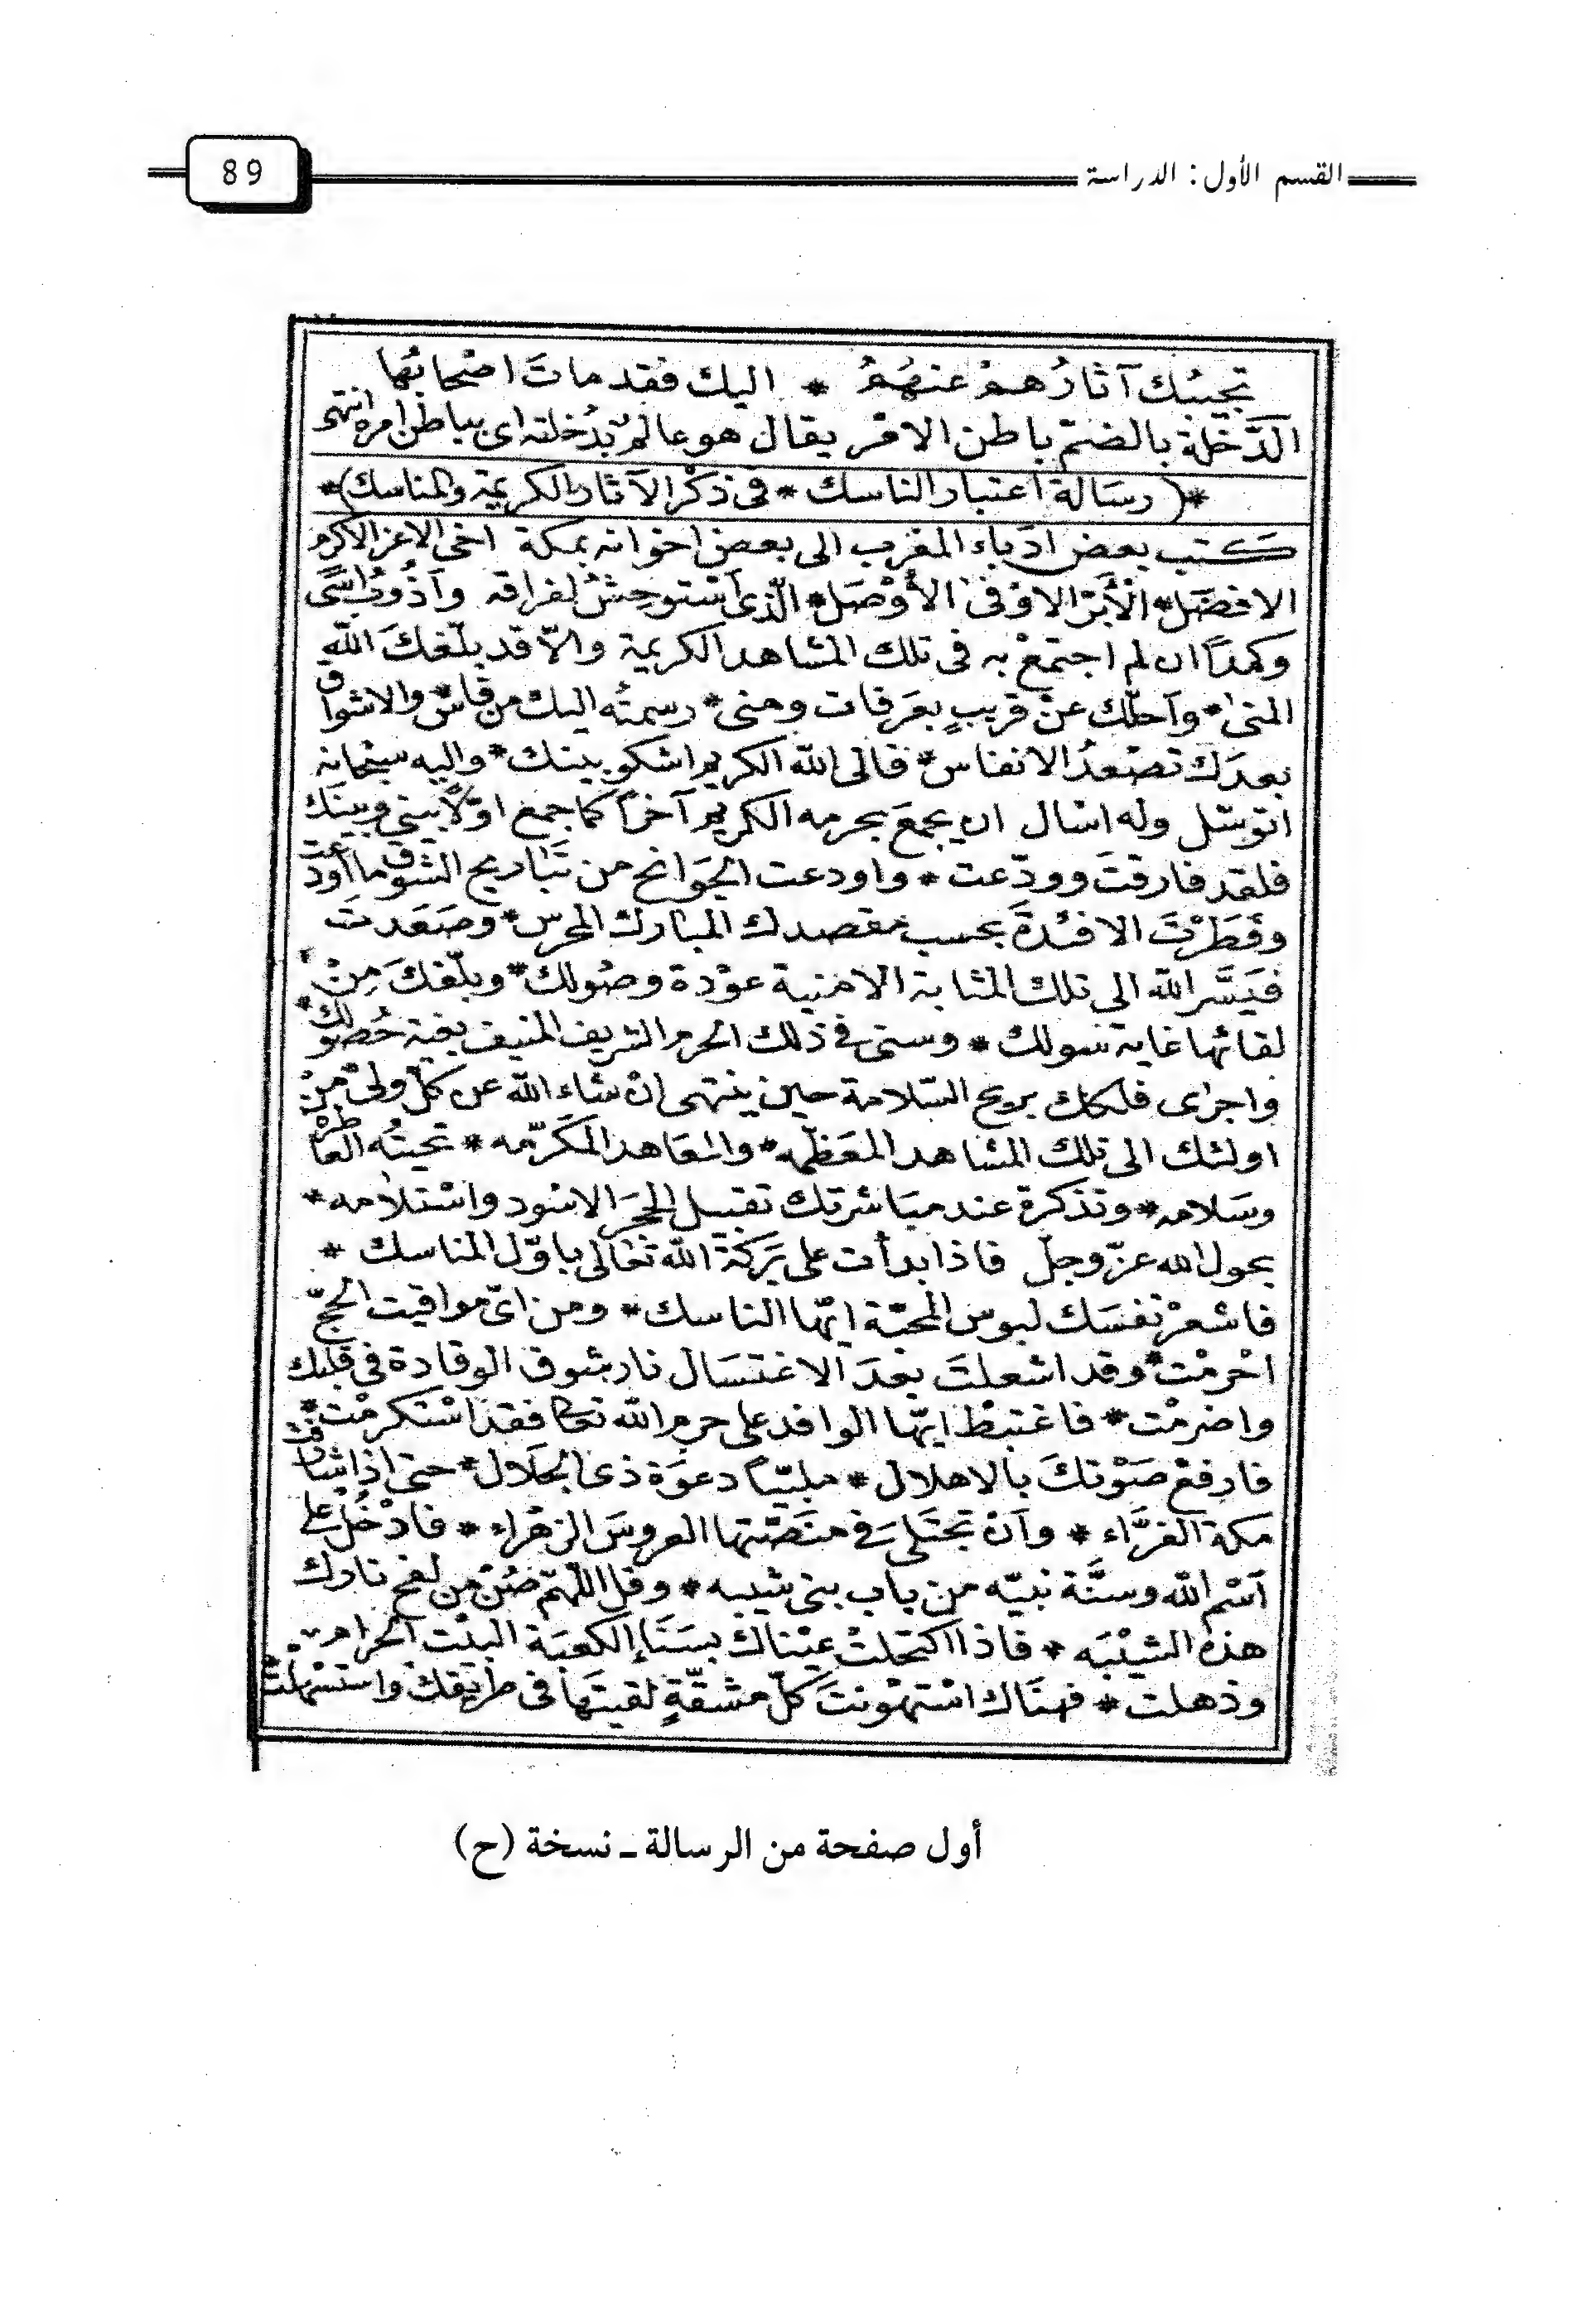 القسم الأول: الدراسة
89
تجيبُك آثارُهمْ عنهُمُ * اليك فقد ماتَ اصْحابُها
الدُّخْلة بالضمّ باطن الامْر يقال هو عالمٌ بدُخلته اى بباطن امره انتهى
*( رسَالة اعتبار الناسك * فى ذكْر الآثار الكريمة والمناسك)*
كتب بعض ادَباء المغرب الى بعض اخوانه بمكة اخى الاعز الاكرم
الافضَل* الْأَبَرّ الاوْفى الأوْصَل* الّذى اَسْتوحِشُ لفراقه وَاَذُوبُ اسًى
وكمدًا ان لم اجتمعْ به فى تلك المشاهد الكريمة والّا قد بلّغكَ اللّه
المنى* وَاَحلّك عنْ قريبٍ بعَرفات ومنى* رسمتُه اليك من فاسْ والاشواق
بعدَك تصْعدُ الانفاس* فالى اللّه الكريم اشكو بينك* واليه سبْحانه
اتوسّل وله اسْال ان يجمعَ بحرمه الكريم آخرًا كما جمعَ اوّلًا بيْنى وبينَك
فلقد فارقتَ وودّعت* واودعت الجَوانح من تَباريح الشوق ما اَودَعت
وفَطَرْتَ الافئدةَ بحسب مقصدك المبارك المحرس* وصَعَدتَ
فيَسَّر اللّه الى تلك المثابة الامنية عوْدة وصُولك* وبلّغكَ مِنْ
لقائها غاية سولك* وسنى فى ذلك الحرم الشريف المنيف بغية حُصولك*
واجرى فلكك بريح السّلامة حين ينتهى انْ شاء اللّه عن كلّ ولىّ منْ
اولئك الى تلك المشاهد المعَظّمه* والمعَاهد المكَرّمه* تحيتُه العَاطرْ
وسَلامه* وتذكرة عند مبَاشرتك تقبيل الحجَر الاسْود واسْتلامه*
بحول اللّه عزّ وجلّ فاذا بدأت على بَرَكَة اللّه تعَالى باوّل المناسك*
فاشعرْ نفسَك لبوس المحبّة ايّها الناسك* ومن اىّ مواقيت الحجّ
احْرمْت* وقد اشعلتَ بعْدَ الاغتسَال نار بشوق الوقادة فى قلبك
واضرمْت* فاغتبطْ ايّها الوافد على حرم اللّه تعالى فقد اسْتكرمْت*
فارفعْ صَوْتكَ بالاهلال* ملبيًا دعوَة ذى الجَلال* حتى اذا شارفت
مكة الغرّاء* وآنْ تجتَلىَ فى منصّتها العروسَ الزهْراء* فادْخُلْ على
اَسْم اللّه وسنَّة نبيّه من باب بنى شيبه* وقل اللّهمّ صُنْ من لفح نارك
هذه الشيْبَه* فاذا اكتحلتْ عيْناكَ بسَنَاء الكعْبَة البيْت الحرام
وذهلت* فهنَاك اسْتهْونتَ كلّ مشقّةٍ لقيتَها فى طريقك واستسْهلْت*
أول صفحة من الرسالة ـ نسخة (ح)